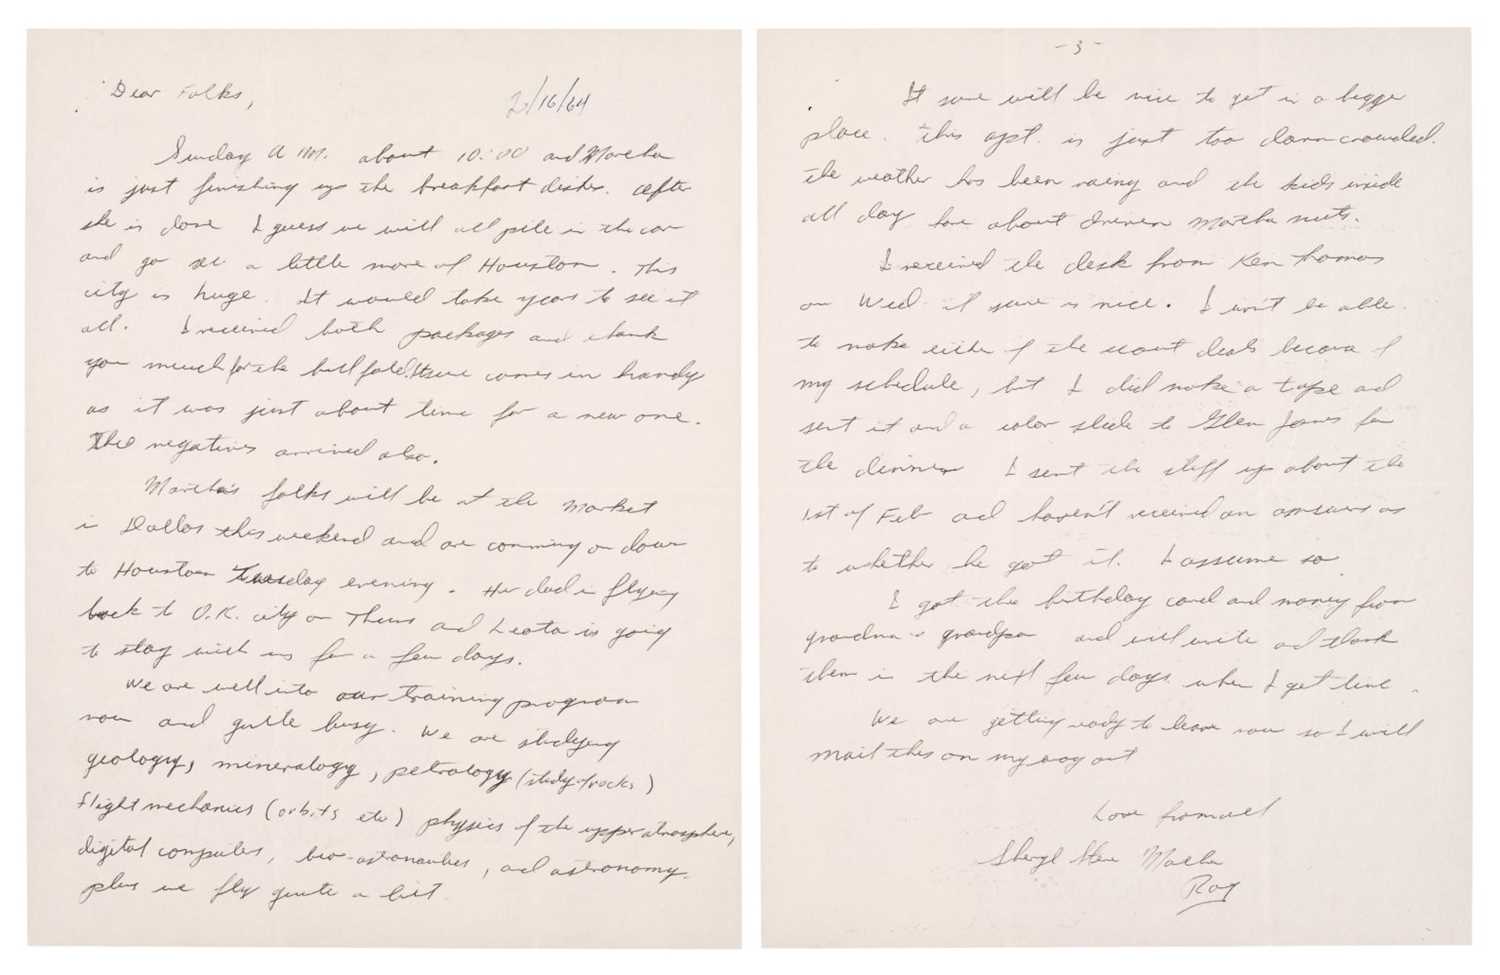 Dear Folks,
2/16/64
Sunday A.M. about 10:00 and Martha
is just finishing up the breakfast dishes. After
she is done I guess we will all pile in the car
and go see a little more of Houston. This
city is huge. It would take years to see it
all. I received both packages and thank
you much for the bill fold. It sure comes in handy
as it was just about time for a new one.
The negatives arrived also.
Martha's folks will be at the market
in Dallas this weekend and are comming on down
to Houston Tuesday evening. Her dad is flying
back to O.K. city on Thurs and Leota is going
to stay with us for a few days.
We are well into our training program
now and quite busy. We are studying
geology, mineralogy, petrology (study of rocks)
flight mechanics (orbits etc) physics of the upper atmosphere,
digital computers, bio-astronautics, and astronomy
plus we fly quite a bit.
-3-
It sure will be nice to get in a bigger
place. This apt. is just too darn crowded.
The weather has been rainy and the kids inside
all day have about driven Martha nuts.
I received the desk from Ken Thomas
on Wed. it sure is nice. I won't be able
to make either of the scout deals because of
my schedule, but I did make a tape and
sent it and a color slide to Glen Jones for
the dinner. I sent the stuff up about the
1st of Feb and haven't received an answer as
to whether he got it. I assume so.
I got the birthday card and money from
grandma & grandpa and will write and thank
them in the next few days when I get time.
We are getting ready to leave now so I will
mail this on my way out
Love from all
Sheryl Steve Martha
Roy